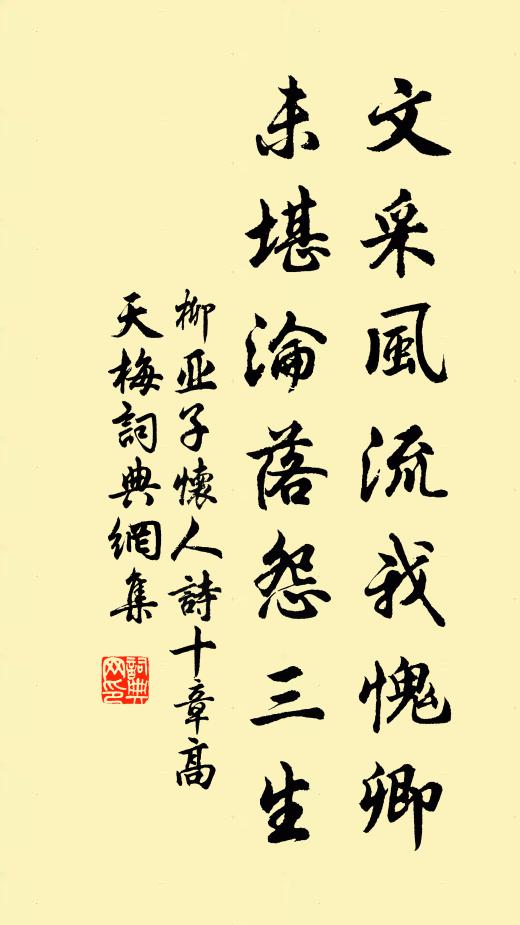 文采風流我愧卿
未堪淪落怨三生
柳亚子懷人詩十章高
天梅詞典網集
詞典网印